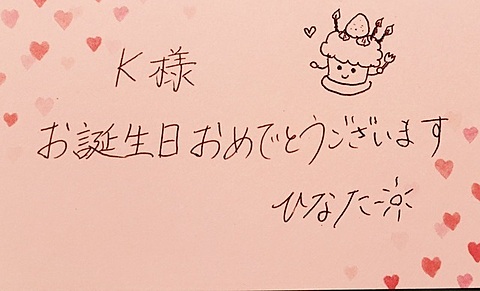 K様
お誕生日おめでとうございます
ひなた